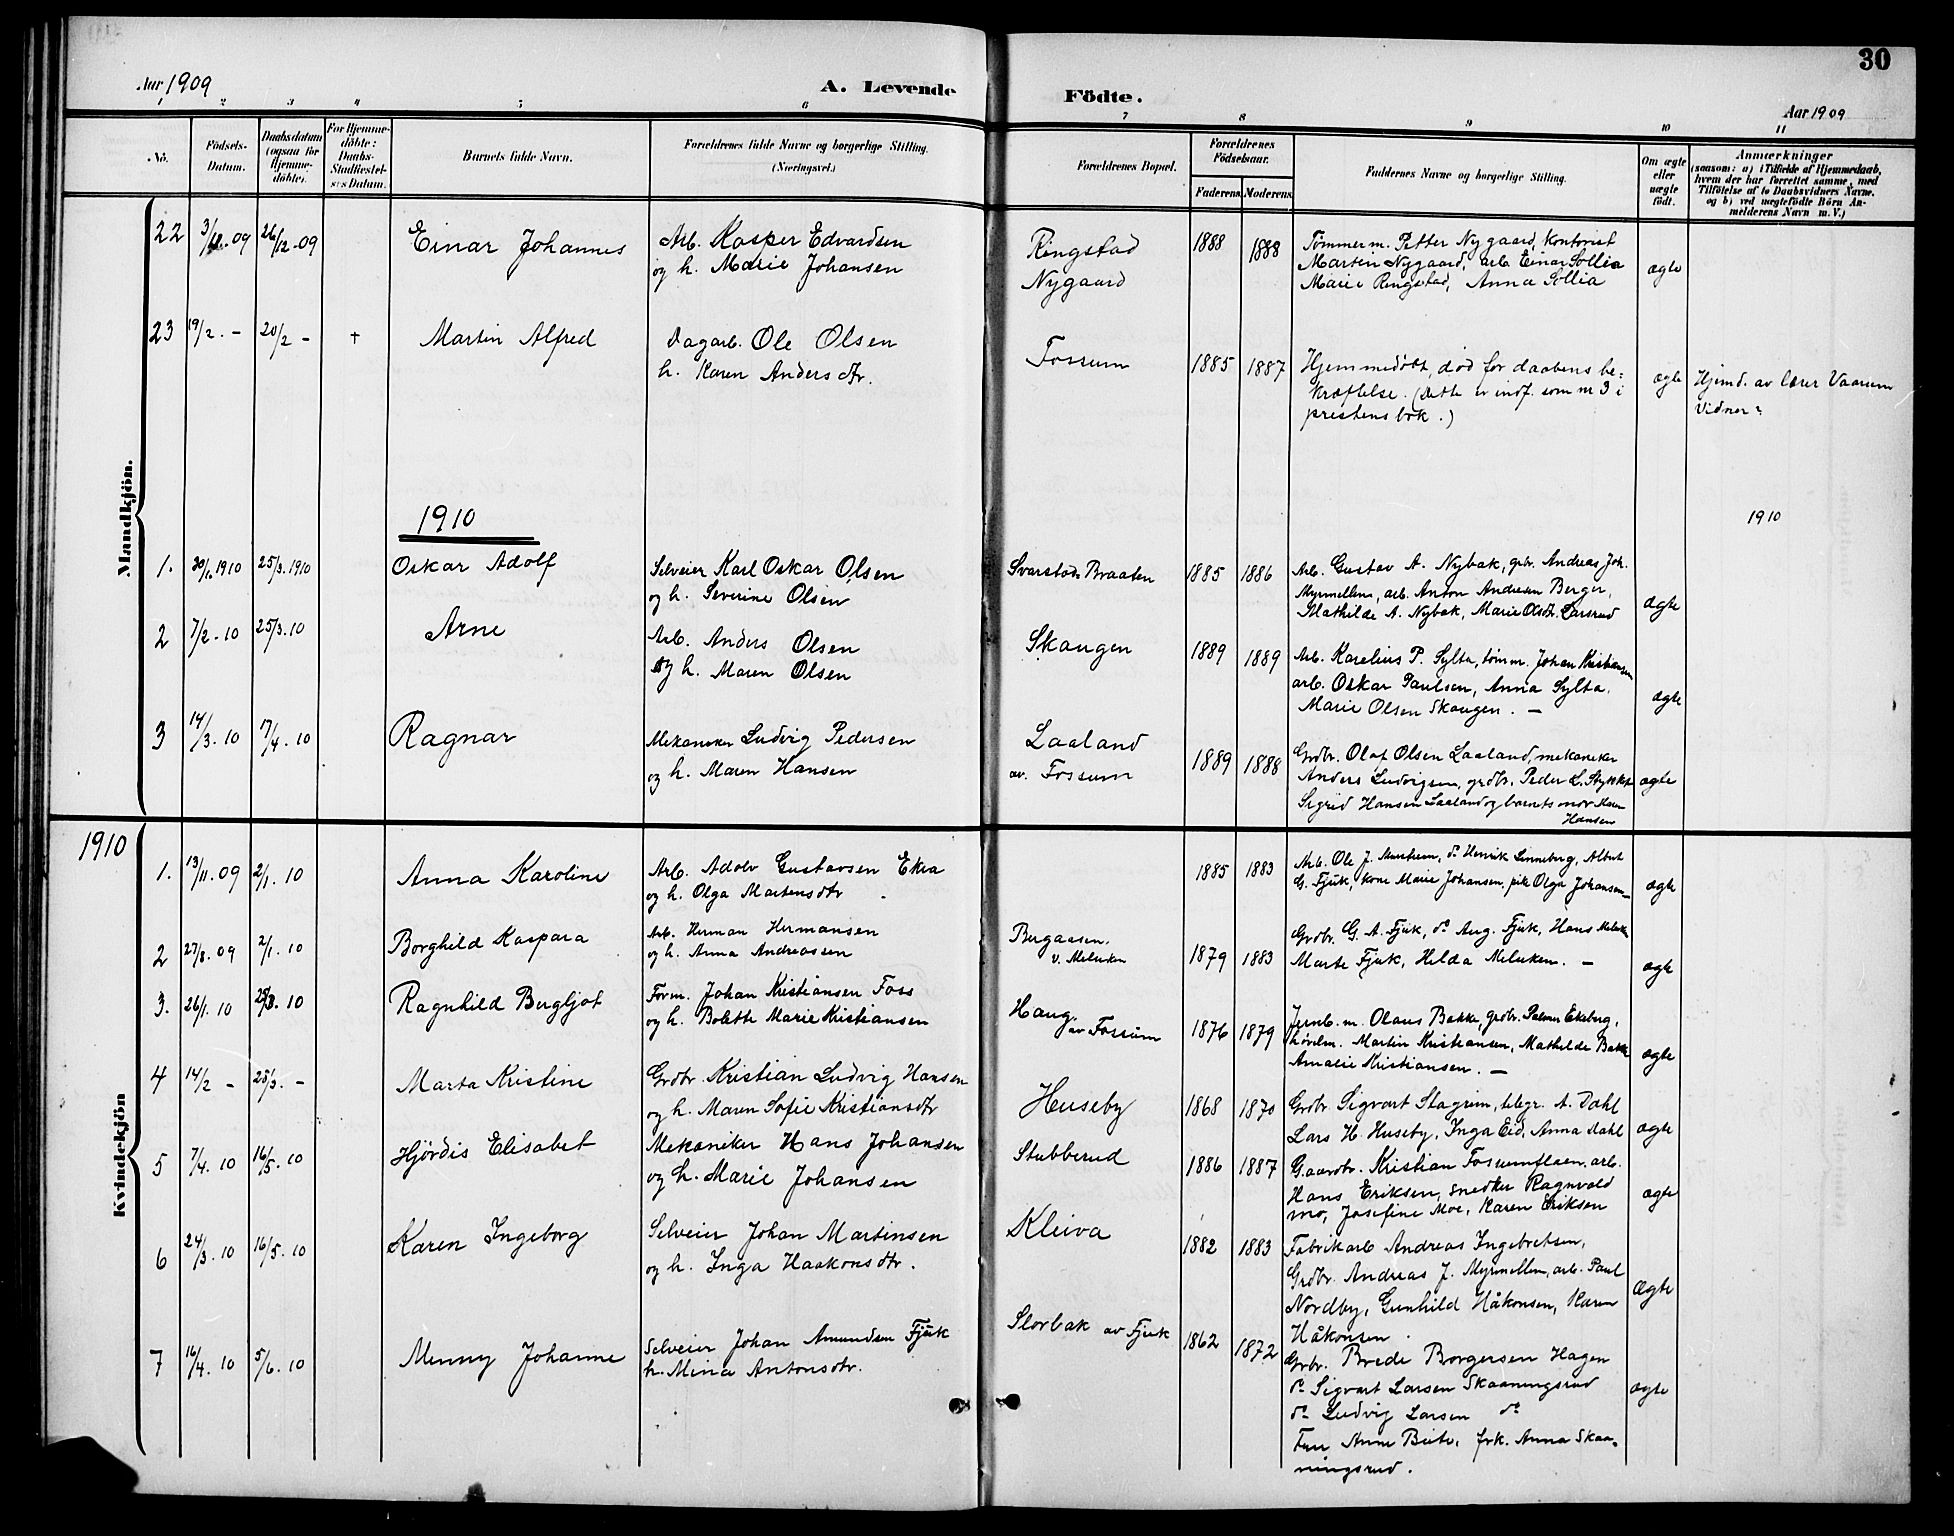 30
Aar 1909
A. Levende Födte.
Aar 1909
1 2 3 4 5 6 7 8 9 10 11
No.
Födsels-
Datum.
Daabsdatum
(ogsaa for
Hjemme-
döbte).
For Hjemme-
döbte:
Daabs-
Stadfæstel-
ses Datum.
Barnets fulde Navn.
Forældrenes fulde Navne og borgerlige Stilling.
(Næringsvei.)
Forældrenes Bopæl.
Forældrenes
Födselsaar.
Faderens.
Moderens.
Faddernes Navne og borgerlige Stilling.
Om ægte
eller
uægte
födt.
Anmærkninger
(saasom: a) i Tilfælde af Hjemmedaab,
hvem der har forrettet samme, med
Tilföielse af to Daabsvidners Navne.
og b) ved uægtefödte Börn An-
melderens Navn m. V.)
Mandkjön.
22 3/12.09 26/12.09 Einar Johannes Arb. Kasper Edvardsen
og h. Marie Johansen
Ringstad
Nygaard
1888 1888
Tømmerm. Petter Nygaard, kontorist
Martin Nygaard, arb. Einar Sollia
Marie Ringstad, Anna Sollia
ægte
23 19/2. – 20/2 – † Martin Alfred Dagarb. Ole Olsen
h. Karen Andersdtr.
Fossum
1885 1887
Hjemmedöbt, död för daabens be-
kræftelse. (Dette er indf. som nr 3 i
prestens bok.)
ægte
Hjemd. av lærer Vaarum
Vidner?
1910
1910
1. 30/1.1910 25/3.1910 Oskar Adolf Selveier Karl Oskar Olsen
og h. Severine Olsen
Svarstad Braaten
1885 1886
Arb. Gustav A. Nybak, gbr. Andreas Joh.
Myrmellem, arb. Anton Andresen Berger,
Mathilde A. Nybak, Marie Olsdtr. Larsrud
ægte
2 7/2.10 25/3.10 Arne Arb. Anders Olsen
og h. Maren Olsen
Skaugen
1889 1889
Arb. Karelius P. Sylta, tømm. Johan Kristiansen
arb. Oskar Paulsen, Anna Sylta,
Marie Olsen Skaugen. –
ægte
3 14/3.10 17/4.10 Ragnar Mekaniker Ludvig Pedersen
og h. Maren Hansen
Laaland
av. Fossum
1889 1888
Grdbr. Olaf Olsen Laaland, mekaniker
Anders Ludvigsen, grdbr. Peder L.
Sigrid Hansen Laaland og barnets mor
Hansen
ægte
1910
Kvindekjön
1. 13/11.09 2/1.10 Anna Karoline Arb. Adolv Gustavsen Ekra
og h. Olga Martensdtr.
1885 1883
Arb. Ole J., do Henrik Linneberg, Albert
G. Fjuk, kone Marie Johansen, pike Olga Johansen –
ægte
2 27/8.09 2/1.10 Borghild Kaspara Arb. Herman Hermansen
og h. Anna Andreassen
Bergaasen.
v. Melieken
1879 1883
Grdbr. G. A. Fjuk, do Aug. Fjuk, Hans
Marte Fjuk, Helda Melieken. –
ægte
3. 26/1.10 25/3.10 Ragnhild Bergljot Form. Johan Kristiansen Foss
og h. Bolette Marie Kristiansen
Haug.
av Fossum
1876 1879
Jernb. m. Olaus Bakke, grdbr. Palmer Ekeberg,
høvlm. Martin Kristiansen, Mathilde Bakke
Amalie Kristiansen. –
ægte
4 14/2 – 25/3. – Marta Kristine Grdbr. Kristian Ludvig Hansen
og h. Maren Sofie Kristiansdtr
Huseby
1868 1870
Grdbr. Sigvart Stagrim, telegr. A. Dahl
Lars H. Huseby, Inga Eid, Anna Dahl
ægte
5 7/4.10 16/5.10 Hjördis Elisabet Mekaniker Hans Johansen
og h. Marie Johansen
Stubberud
1886 1887
Gaardbr. Kristian Fossumflaen, arb.
Hans Eriksen, snedker Ragnvald
Mo, Josefine Moe, Karen Eriksen
ægte
6 24/3.10 16/5.10 Karen Ingeborg Selveier Johan Martinsen
og h. Inga Haakonsdtr.
Kleiva
1882 1883
Fabrikarb Andreas Ingebretsen,
Grdbr. Andreas J. Myrmellem, arb. Paul
Nordby, Gunhild Håkonsen, Karen
Håkonsen.
Ægte
7 16/4.10 5/6.10 Menny Johanne Selveier Johan Amundsen Fjuk
h. Mina Antonsdtr.
Slorbak av Fjuk
1862 1872
Grbr. Brede Borgersen Hagen
do Sigvart Larsen Skaaningsrud
do Ludvig Larsen do
Fru Anne Bete, frk. Anna Skaa-
ningsrud.
ægte